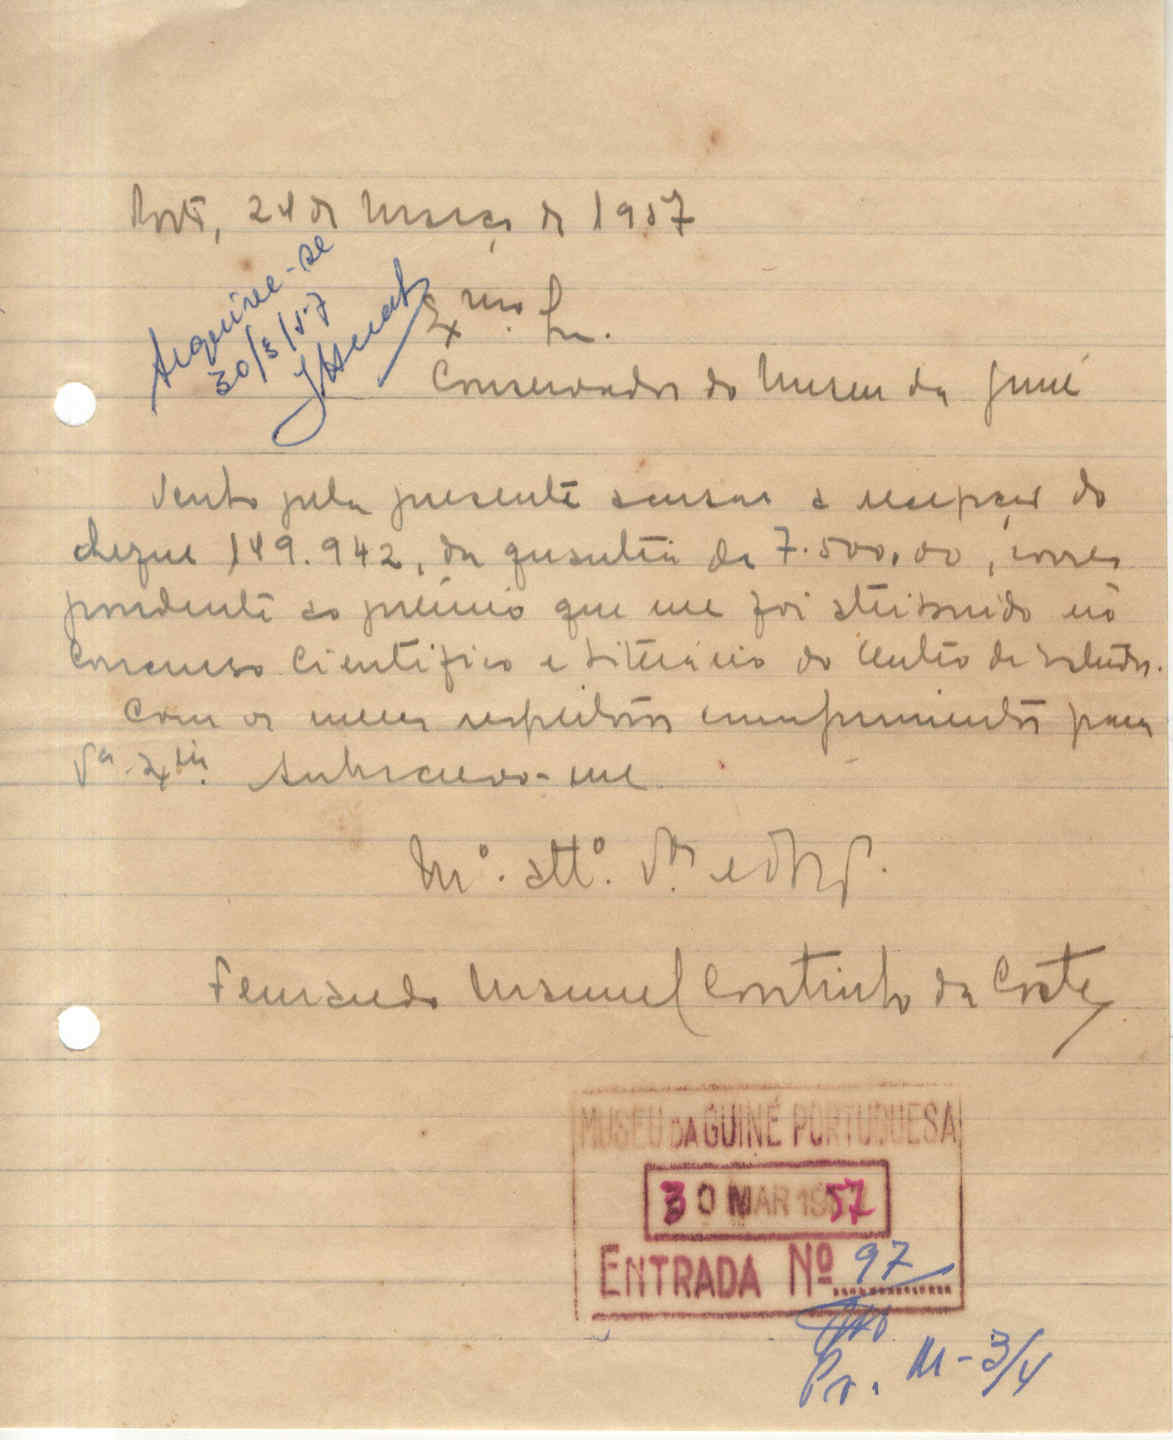 Porto, 24 de Março de 1957
Arquive-se
30/3/57
Exmo. Sr.
Conservador do Museu da Guiné
Venho pela presente acusar a recepção do
cheque 149.942, da quantia de 7.500,00, corres
pondente ao prémio que me foi atribuido no
Concurso Cientifico e Literário do Centro de Estudos.
Com os meus respeitosos cumprimentos para
Va. Excia. subscrevo-me
Mo. atto. Vor e
Fernando Manuel Coutinho da Costa
MUSEU DA GUINÉ PORTUGUESA
30 MAR 1957
ENTRADA Nº 97
Pr. M-3/4